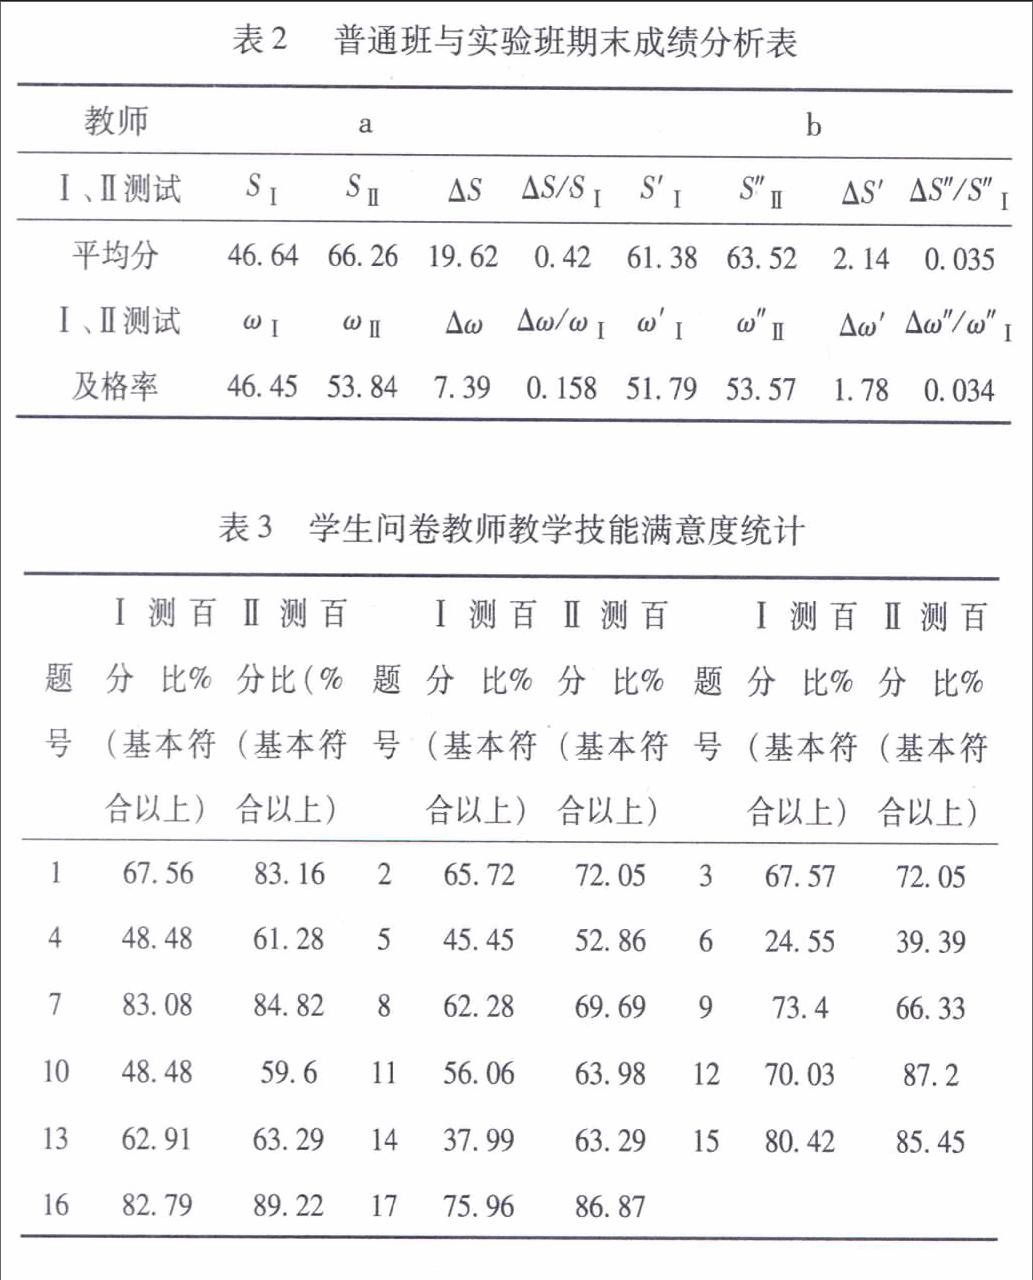 表2 普通班与实验班期末成绩分析表
教师 a b
Ⅰ、Ⅱ测试 SⅠ SⅡ ΔS ΔS/SⅠ S′Ⅰ S″Ⅱ ΔS′ ΔS″/S″Ⅰ
平均分 46.64 66.26 19.62 0.42 61.38 63.52 2.14 0.035
Ⅰ、Ⅱ测试 ωⅠ ωⅡ Δω Δω/ωⅠ ω′Ⅰ ω″Ⅱ Δω′ Δω″/ω″Ⅰ
及格率 46.45 53.84 7.39 0.158 51.79 53.57 1.78 0.034
表3 学生问卷教师教学技能满意度统计
Ⅰ测百 Ⅱ测百 Ⅰ测百 Ⅱ测百 Ⅰ测百 Ⅱ测百
题 分比% 分比(% 题 分比% 分比% 题 分比% 分比%
号 (基本符 (基本符 号 (基本符 (基本符 号 (基本符 (基本符
合以上) 合以上) 合以上) 合以上) 合以上) 合以上)
1 67.56 83.16 2 65.72 72.05 3 67.57 72.05
4 48.48 61.28 5 45.45 52.86 6 24.55 39.39
7 83.08 84.82 8 62.28 69.69 9 73.4 66.33
10 48.48 59.6 11 56.06 63.98 12 70.03 87.2
13 62.91 63.29 14 37.99 63.29 15 80.42 85.45
16 82.79 89.22 17 75.96 86.87